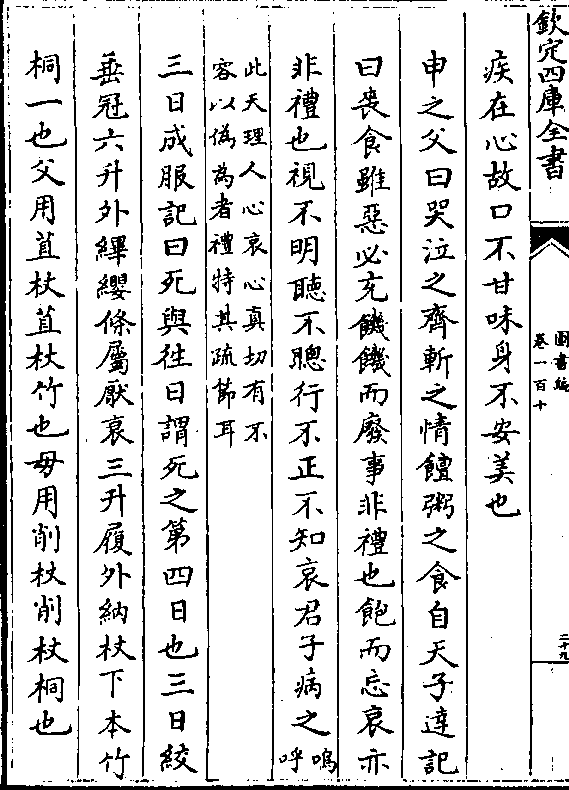 欽定四庫全書
圖書編
卷一百十
二十九
疾在心故口不甘味身不安美也
申之父曰哭泣之齊斬之情饘粥之食自天子達記
曰喪食雖惡必充饑饑而廢事非禮也飽而忘哀亦
非禮也視不明聽不聰行不正不知哀君子病之嗚呼
此天理人心哀心真切有不
容以偽為者禮特其疏節耳
三日成服記曰死與徃日謂死之第四日也三日絞
垂冠六升外縪纓條屬厭衰三升履外納杖下本竹
桐一也父用苴杖苴杖竹也毋用削杖削杖桐也